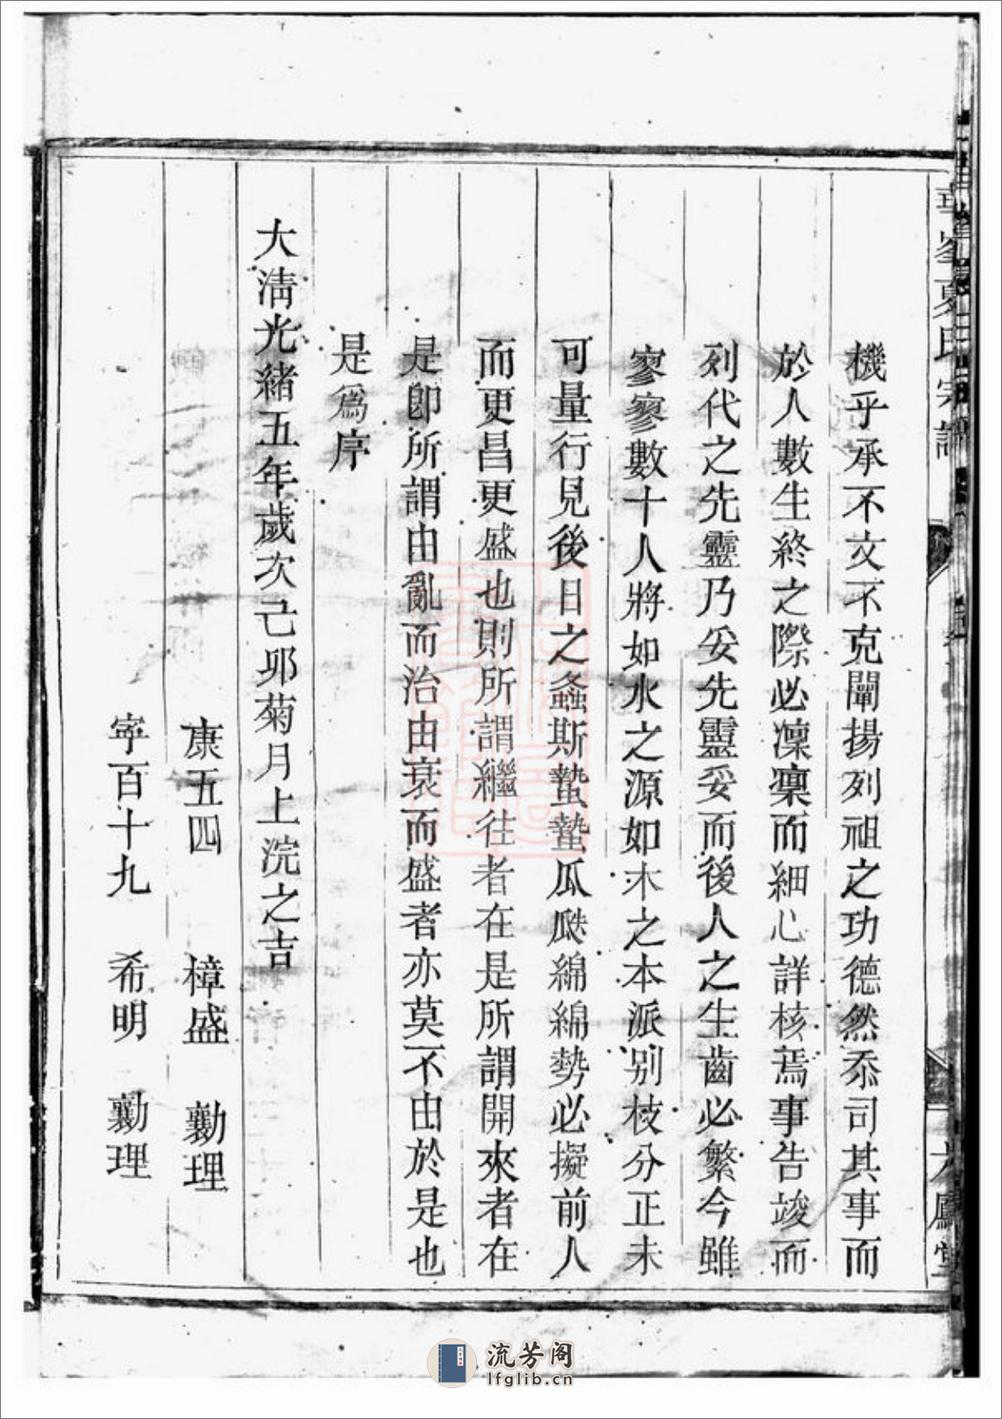 機乎承不文不克闡揚列祖之功德然忝司其事而
於人數生終之際必凜凜而細心詳核焉事告竣而
列代之先靈乃妥先靈妥而後人之生齒必繁今雖
寥寥數十人將如水之源如木之本派别枝分正未
可量行見後日之螽斯蟄蟄瓜瓞綿綿勢必擬前人
而更昌更盛也則所謂繼往者在是所謂開來者在
是卽所謂由亂而治由衰而盛者亦莫不由於是也
是爲序
大淸光緒五年歲次己卯菊月上浣之吉
康五四 樟盛 勷理
寧百十九 希明 勷理
夏氏宗譜
鳳堂
流芳阁
lfglib.cn